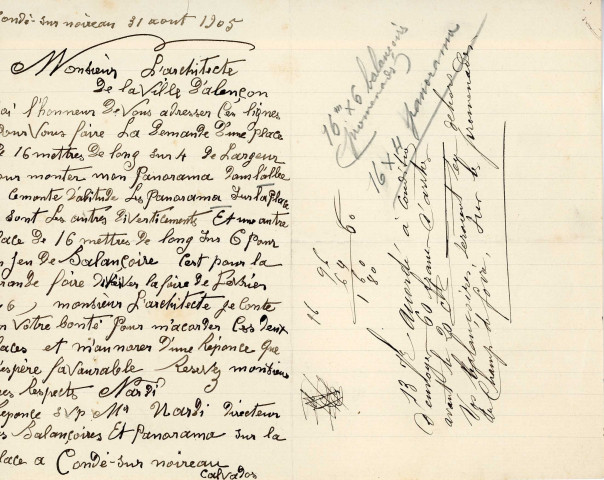 Condé-sur noireau 31 aout 1905
Monsieur L'architecte
De la Ville D'alençon
ai l'honneur De Vous adresser Ces lignes
pour Vous faire La Demande D'une place
De 16 mettres De long sur 4 De Largeur
pour monter mon Panorama Dans l'allée
le monte D'abitude Les Panorama Sur la place
sont Les autres Divertisements Et une autre
place De 16 mettres De long sur 6 pour
un Jeu De Balançoire C'est pour la
grande foire la foire de Fevrier
6, monsieur L'architecte je Conte
Votre bonté pour m'acorder Ces Deux
places et m'annorer D'une Réponce que
espère favourable Recevez monsieur
mes Respects Nardi
Reponce s.v.p Mr Nardi Directeur
Des Balançoires Et Panorama sur la
place a Condé-sur noireau
Calvados
16m x 6 balançoires
Promenades
16 x 4 panorama
16
96
64
160
60
80
13 7bre Accordé à condition
d'envoyer 60 francs d'arrhes
avant le 20
Vos balançoires seront en dehors
du Champ de foire, sur les promenades